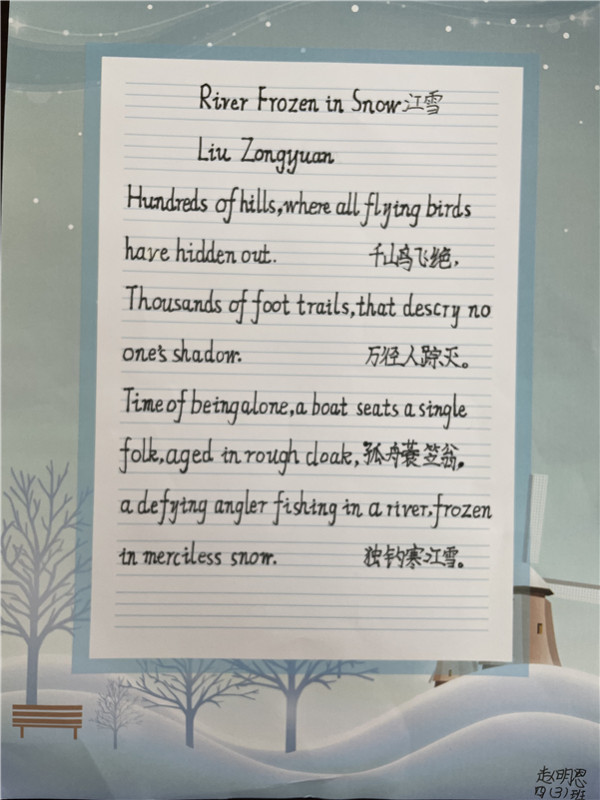 River Frozen in Snow江雪
Liu Zongyuan
Hundreds of hills,where all flying birds
have hidden out. 千山鸟飞绝,
Thousands of foot trails,that descry no
one's shadow. 万径人踪灭。
Time of being alone,a boat seats a single
folk,aged in rough cloak,孤舟蓑笠翁。
a defying angler fishing in a river,frozen
in merciless snow. 独钓寒江雪。
赵明恩
四(3)班